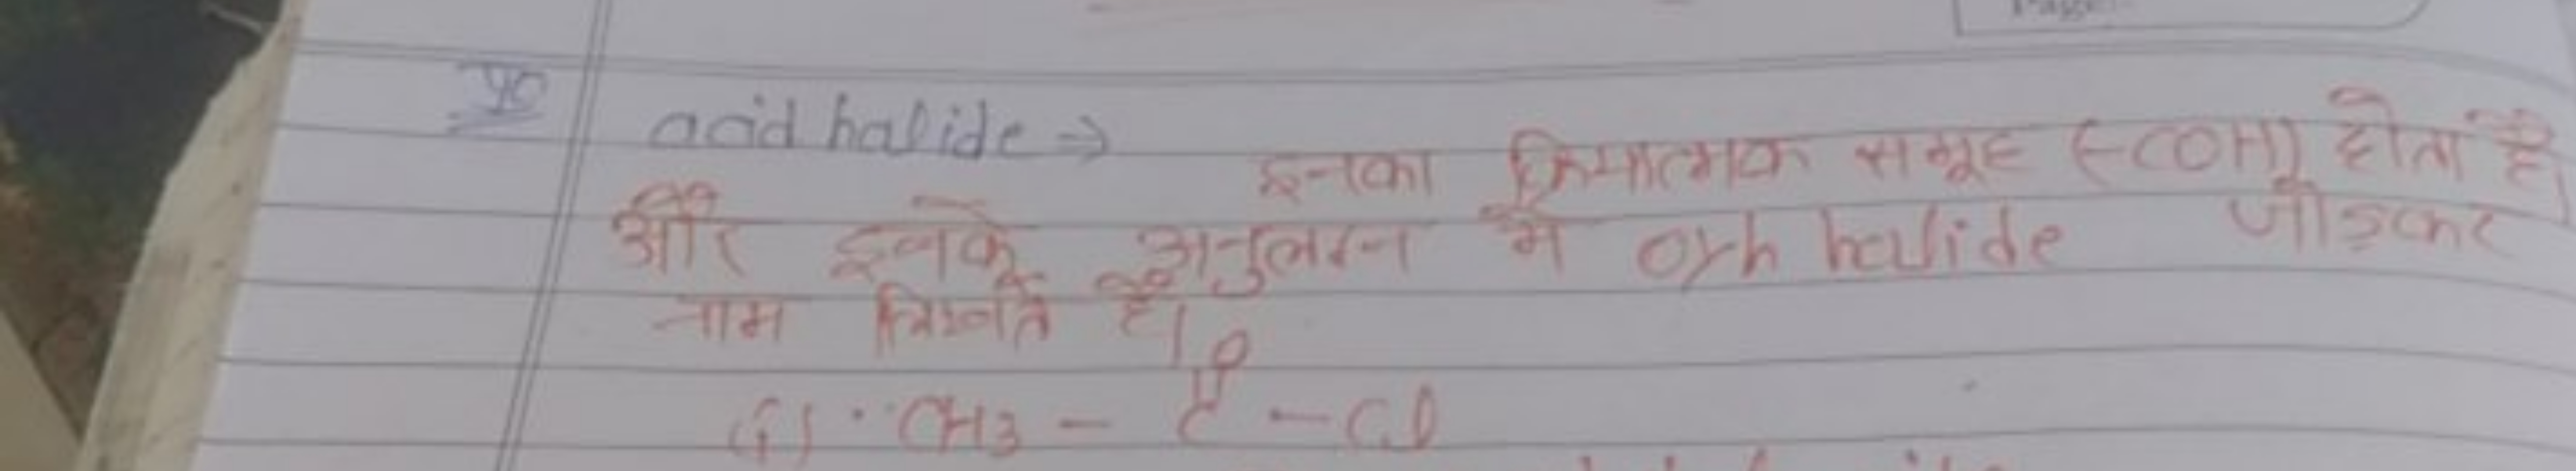 Page
acid halide →
इनका क्रियात्मक समूह (-COH) होता है।
और इनके अनुलग्न में oyh halide जोड़कर
नाम लिखते है।
O
(i) CH3 - C - Cl